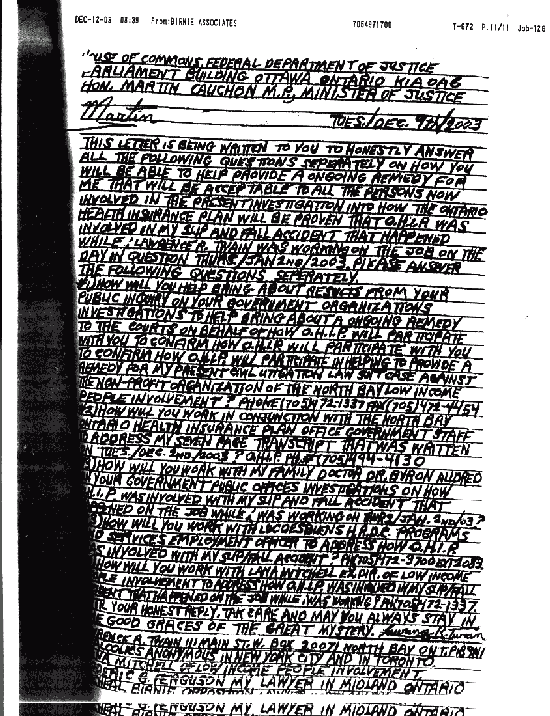 DEC-12-03 08:39 From:BIRNIE ASSOCIATES 7054871708 T-672 P.11/11 Job-126
USE OF COMMONS, FEDERAL DEPARTMENT OF JUSTICE
ARLIAMENT BUILDING OTTAWA ONTARIO KIA OA6
HON. MARTIN CAUCHON M.P., MINISTER OF JUSTICE
Martin TUES./DEC. 9th/2003
THIS LETTER IS BEING WRITTEN TO YOU TO HONESTLY ANSWER
ALL THE FOLLOWING QUESTIONS SEPERATELY ON HOW YOU
WILL BE ABLE TO HELP PROVIDE A ONGOING REMEDY FOR
ME THAT WILL BE ACCEPTABLE TO ALL THE PERSONS NOW
INVOLVED IN THE PRESENT INVESTIGATION INTO HOW THE ONTARIO
HEALTH INSURANCE PLAN WILL BE PROVEN THAT O.H.I.P. WAS
INVOLVED IN MY SLIP AND FALL ACCIDENT THAT HAPPENED
WHILE I LAWRENCE R. TRAIN WAS WORKING ON THE JOB ON THE
DAY IN QUESTION THURS./JAN 2nd/2003 PLEASE ANSWER
THE FOLLOWING QUESTIONS SEPERATELY.
HOW WILL YOU HELP BRING ABOUT RESULTS FROM YOUR
PUBLIC INQUIRY ON YOUR GOVERNMENT ORGANIZATIONS
INVESTIGATIONS TO HELP BRING ABOUT A ONGOING REMEDY
TO THE COURTS ON BEHALF OF HOW O.H.I.P. WILL PARTICIPATE
WITH YOU TO CONFIRM HOW O.H.I.P. WILL PARTICIPATE WITH YOU
TO CONFIRM HOW O.H.I.P. WILL PARTICIPATE IN HELPING TO PROVIDE A
REMEDY FOR MY PRESENT CIVIL LITIGATION LAW SUIT CASE AGAINST
THE NON-PROFIT ORGANIZATION OF THE NORTH BAY LOW INCOME
PEOPLE INVOLVEMENT? PHONE (705) 472-1337 FAX (705) 472-4454
HOW WILL YOU WORK IN CONJUNCTION WITH THE NORTH BAY
ONTARIO HEALTH INSURANCE PLAN OFFICE GOVERNMENT STAFF
ADDRESS MY SEVEN PAGE TRANSCRIPT THAT WAS WRITTEN
TUES./DEC. 2nd/2003 ? O.H.I.P. (705) 494-4130
HOW WILL YOU WORK WITH MY FAMILY DOCTOR DR. BYRON ALLDRED
YOUR GOVERNMENT PUBLIC OFFICES INVESTIGATIONS ON HOW
WAS INVOLVED WITH MY SLIP AND FALL ACCIDENT THAT
ON THE JOB WHILE I WAS WORKING ON THURS./JAN. 2nd/03?
HOW WILL YOU WORK WITH PROGRAMS
SERVICES EMPLOYMENT OFFICER TO ADDRESS HOW O.H.I.P.
INVOLVED WITH MY SLIP/FALL ACCIDENT?
HOW WILL YOU WORK WITH LANA MITCHELL EX. DIR. OF LOW INCOME
INVOLVEMENT TO ADDRESS HOW O.H.I.P. WAS INVOLVED IN MY SLIP/FALL
THAT HAPPENED ON THE JOB WHILE I WAS WORKING? 472-1337
YOUR HONEST REPLY. TAKE CARE AND MAY YOU ALWAYS STAY IN
GOOD GRACES OF THE GREAT MYSTERY. Lawrence R. Train
R. TRAIN 111 MAIN ST. W. BOX 20071 NORTH BAY ON
ANONYMOUS IN NEW YORK CITY AND IN TORONTO
MITCHELL OF LOW INCOME PEOPLE INVOLVEMENT
G. FERGUSON MY LAWYER IN MIDLAND ONTARIO
BIRNIE
G. FERGUSON MY LAWYER IN MIDLAND ONTARIO